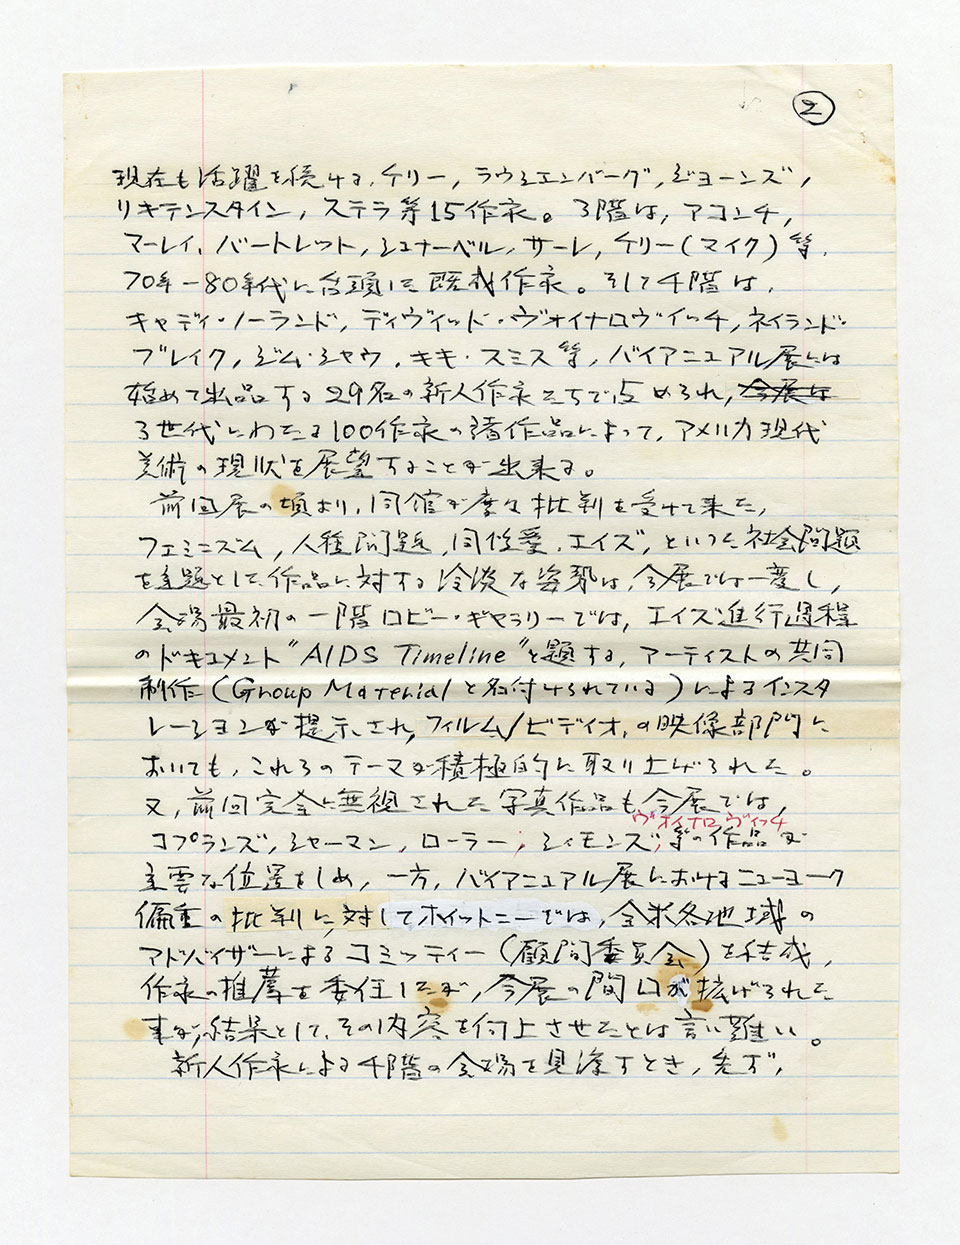 2
現在も活躍を続ける、ケリー, ラウシエンバーグ, ジョーンズ,
リキテンスタイン, ステラ等15作家。3階は, アコンチ,
マーレイ, バートレット, シュナーベル, サーレ, ケリー(マイク)等,
70年-80年代に台頭した既成作家。そして4階は,
キャディ・ノーランド, ディヴィッド・ヴォイナロヴィッチ, ネイランド・
ブレイク, ジム・シャウ, キキ・スミス等, バイアニュアル展には
始めて出品する29名の新人作家たちで占められ, 今展は
3世代にわたる100作家の諸作品によって, アメリカ現代
美術の現状を展望することが出来る。
前回展の頃より, 同館が度々批判を受けて来た,
フェミニズム, 人種問題, 同性愛, エイズ, といった社会問題
を主題とした作品に対する冷淡な姿勢は, 今展では一変し,
会場最初の一階ロビー・ギャラリーでは, エイズ進行過程
のドキュメント"AIDS Timeline"と題する, アーティストの共同
制作(Group Materialと名付けられている)によるインスタ
レーションが提示され, フィルム/ビデイオ, の映像部門に
おいても, これらのテーマが積極的に取り上げられた。
又, 前回完全に無視された写真作品も今展では,
ヴォイナロヴィッチ
コプランズ, シャーマン, ローラー, シモンズ, 等の作品が
主要な位置をしめ, 一方, バイアニュアル展におけるニューヨーク
偏重の批判に, 対してホイットニーでは, 全米各地域の
アドバイザーによるコミッティー(顧問委員会)を結成,
作家の推薦を委任したが, 今展の間口が拡げられた
事が, 結果として, その内容を向上させたとは言い難い。
新人作家による4階の会場を見渡すとき, 先ず,